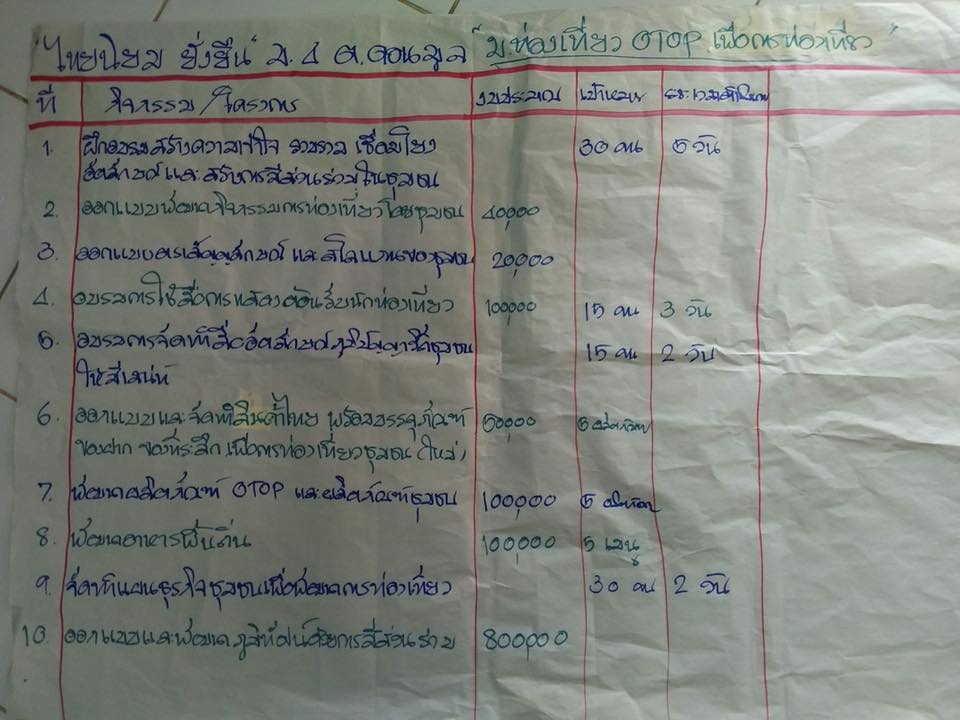 "ไทยนิยม ยั่งยืน" ม.4 ต.ดอนมูล "ม.ท่องเที่ยว OTOP เพื่อการท่องเที่ยว"
ที่ กิจกรรม/โครงการ งบประมาณ เป้าหมาย ระยะเวลาดำเนินงาน
1. ฝึกอบรมสร้างความเข้าใจ รวบรวม เชื่อมโยง 30 คน 5 วัน
อัตลักษณ์ และสร้างการมีส่วนร่วมในชุมชน
2. ออกแบบพัฒนากิจกรรมการท่องเที่ยวโดยชุมชน 40,000
3. ออกแบบตราสัญญลักษณ์ และสโลแกนของชุมชน 20,000
4. อบรมการใช้สื่อการแสดงต้อนรับนักท่องเที่ยว 100,000 15 คน 3 วัน
5. อบรมการจัดทำสื่ออัตลักษณ์ภูมิปัญญาวิถีชุมชน 15 คน 2 วัน
ให้มีเสน่ห์
6. ออกแบบและจัดทำสินค้าไทย พร้อมบรรจุภัณฑ์ 50,000 5 ผลิตภัณฑ์
ของฝาก ของที่ระลึก เพื่อการท่องเที่ยวชุมชน (ใหม่)
7. พัฒนาผลิตภัณฑ์ OTOP และผลิตภัณฑ์ชุมชน 100,000 5 ผลิตภัณฑ์
8. พัฒนาอาหารพื้นถิ่น 100,000 5 เมนู
9. จัดทำแผนธุรกิจชุมชนเพื่อพัฒนาการท่องเที่ยว 30 คน 2 วัน
10. ออกแบบและพัฒนาภูมิทัศน์ด้วยการมีส่วนร่วม 800,000